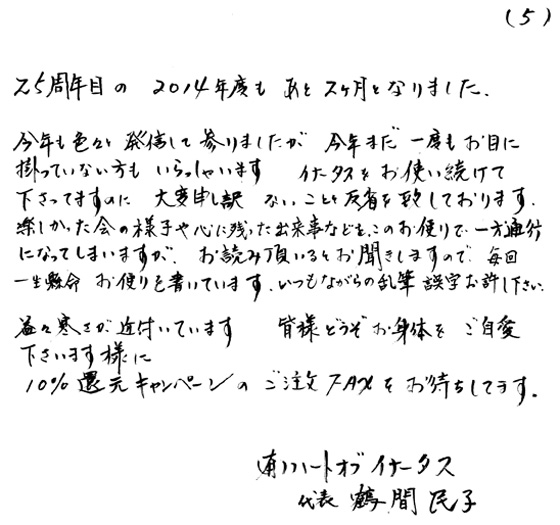 (5)
25周年目の 2014年度も あと2ヶ月となりました.
今年も色々と 発信して 参りましたが 今年まだ 一度もお目に
掛っていない方も いらっしゃいます イナータスをお使い続けて
下さってますのに 大変申し訳 ないことを反省を致しております.
楽しかった会の様子や心に残った出来事などを、このお便りで一方通行
になってしまいますが、お読み頂いるとお聞きしますので、毎回
一生懸命 お便りを書いています、いつもながらの乱筆 誤字お許し下さい
益々寒さが近付いています 皆様どうぞお身体を ご自愛
下さいます様に
10%還元キャンペーンのご注文FAXをお待ちしてます.
(有)ハートオブイナータス
代表 鶴間民子